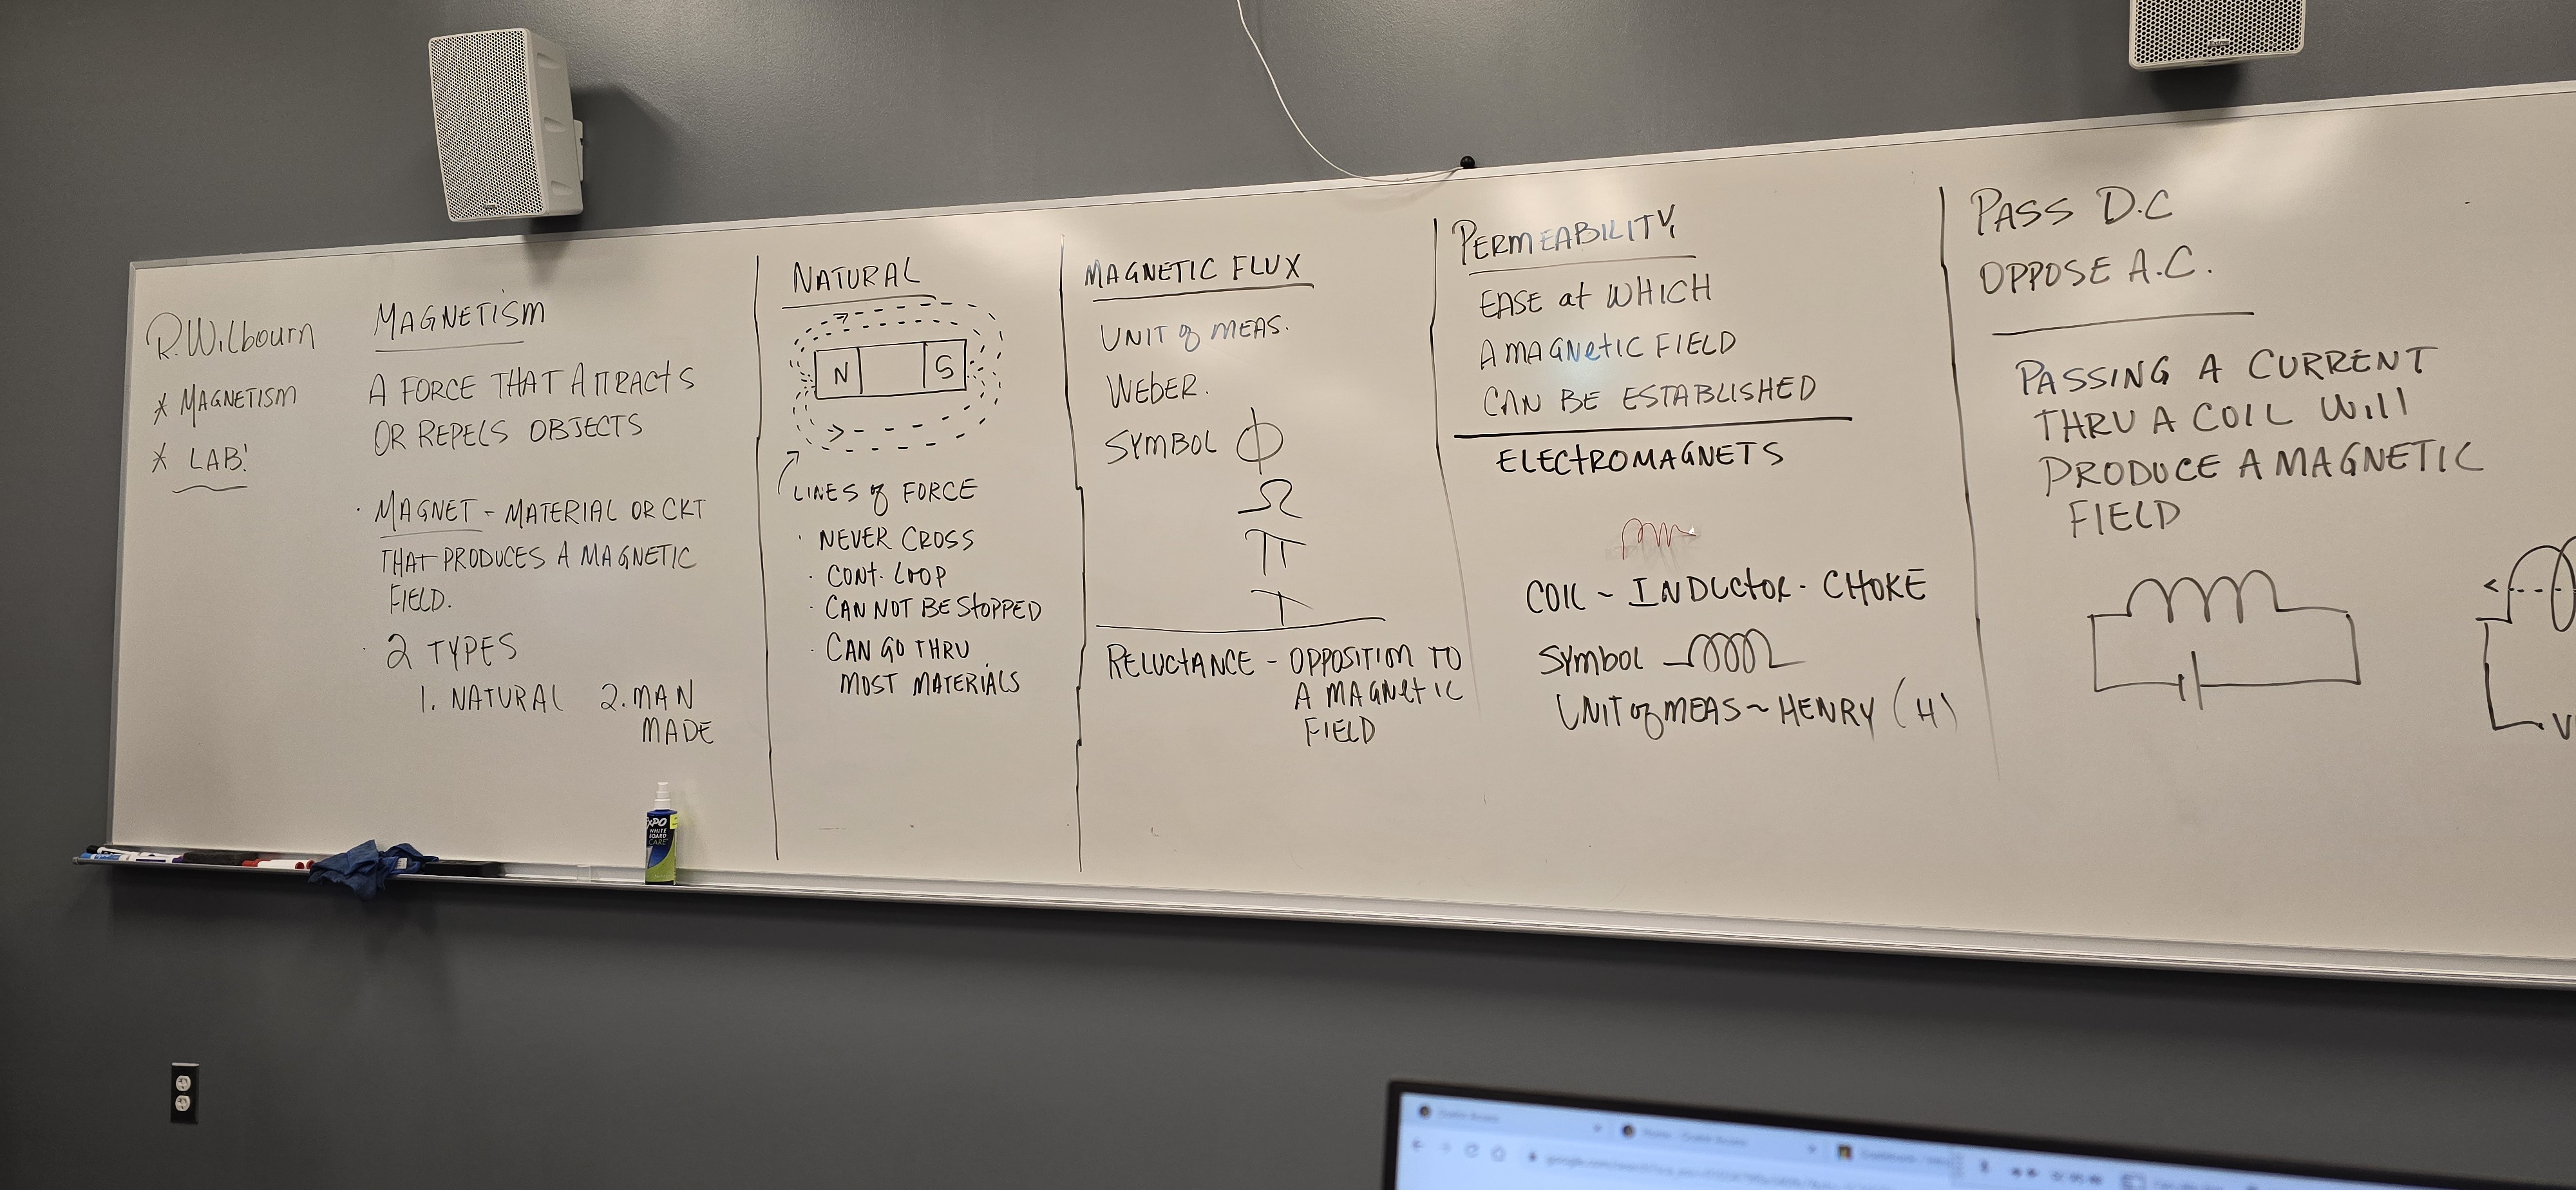 R. Wilbourn
* MAGNETISM
* LAB!
MAGNETISM
A FORCE THAT ATTRACTS
OR REPELS OBJECTS
· MAGNET - MATERIAL OR CKT
THAT PRODUCES A MAGNETIC
FIELD.
· 2 TYPES
1. NATURAL 2. MAN
MADE
NATURAL
N S
LINES of FORCE
· NEVER CROSS
· CONT. LOOP
· CAN NOT BE STOPPED
· CAN GO THRU
MOST MATERIALS
MAGNETIC FLUX
UNIT of MEAS.
WEBER.
SYMBOL Φ
Ω
π
RELUCTANCE - OPPOSITION TO
A MAGNETIC
FIELD
PERMEABILITY
EASE at WHICH
A MAGNETIC FIELD
CAN BE ESTABLISHED
ELECTROMAGNETS
COIL ~ INDUCTOR - CHOKE
SYMBOL
UNIT of MEAS ~ HENRY (H)
PASS D.C
OPPOSE A.C.
PASSING A CURRENT
THRU A COIL WILL
PRODUCE A MAGNETIC
FIELD
V
EXPO
WHITE
BOARD
CARE